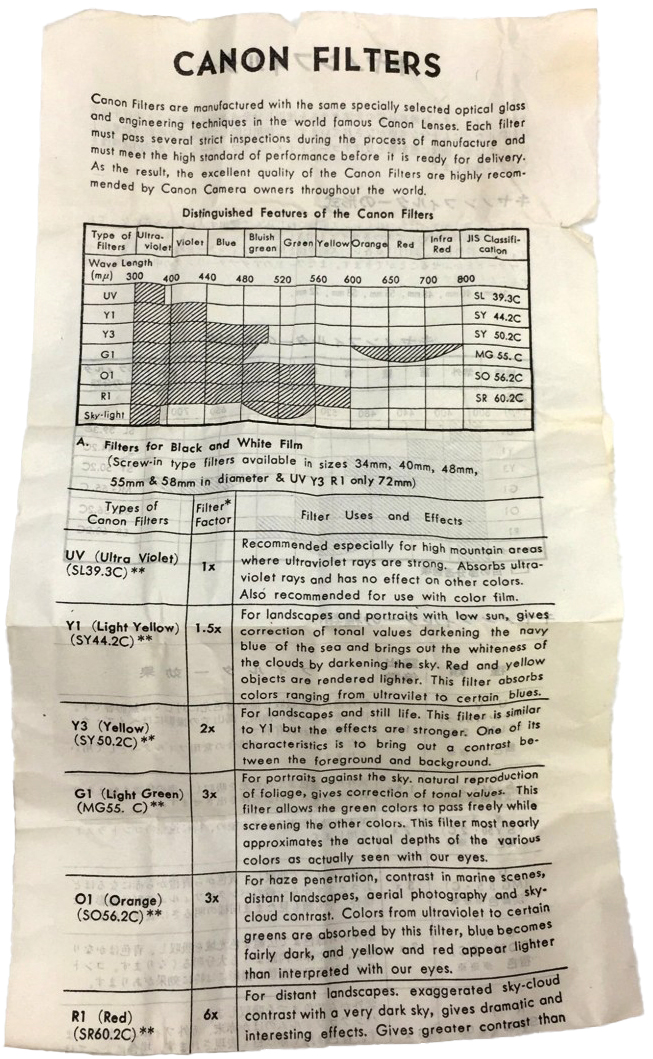 CANON FILTERS
Canon Filters are manufactured with the same specially selected optical glass
and engineering techniques in the world famous Canon Lenses. Each filter
must pass several strict inspections during the process of manufacture and
must meet the high standard of performance before it is ready for delivery.
As the result, the excellent quality of the Canon Filters are highly recom-
mended by Canon Camera owners throughout the world.
Distinguished Features of the Canon Filters
Type of Filters Ultra-violet Violet Blue Bluish green Green Yellow Orange Red Infra Red JIS Classifi-cation
Wave Length
(mμ) 300 400 440 480 520 560 600 650 700 800
UV SL 39.3C
Y1 SY 44.2C
Y3 SY 50.2C
G1 MG 55. C
O1 SO 56.2C
R1 SR 60.2C
Sky-light
A. Filters for Black and White Film
(Screw-in type filters available in sizes 34mm, 40mm, 48mm,
55mm & 58mm in diameter & UV Y3 R1 only 72mm)
Types of Canon Filters Filter* Factor Filter Uses and Effects
UV (Ultra Violet)
(SL39.3C) **
1x
Recommended especially for high mountain areas
where ultraviolet rays are strong. Absorbs ultra-
violet rays and has no effect on other colors.
Also recommended for use with color film.
Y1 (Light Yellow)
(SY44.2C) **
1.5x
For landscapes and portraits with low sun, gives
correction of tonal values darkening the navy
blue of the sea and brings out the whiteness of
the clouds by darkening the sky. Red and yellow
objects are rendered lighter. This filter absorbs
colors ranging from ultravilet to certain blues.
Y3 (Yellow)
(SY50.2C) **
2x
For landscapes and still life. This filter is similar
to Y1 but the effects are stronger. One of its
characteristics is to bring out a contrast be-
tween the foreground and background.
G1 (Light Green)
(MG55. C) **
3x
For portraits against the sky. natural reproduction
of foliage, gives correction of tonal values. This
filter allows the green colors to pass freely while
screening the other colors. This filter most nearly
approximates the actual depths of the various
colors as actually seen with our eyes.
O1 (Orange)
(SO56.2C) **
3x
For haze penetration, contrast in marine scenes,
distant landscapes, aerial photography and sky-
cloud contrast. Colors from ultraviolet to certain
greens are absorbed by this filter, blue becomes
fairly dark, and yellow and red appear lighter
than interpreted with our eyes.
R1 (Red)
(SR60.2C) **
6x
For distant landscapes. exaggerated sky-cloud
contrast with a very dark sky, gives dramatic and
interesting effects. Gives greater contrast than